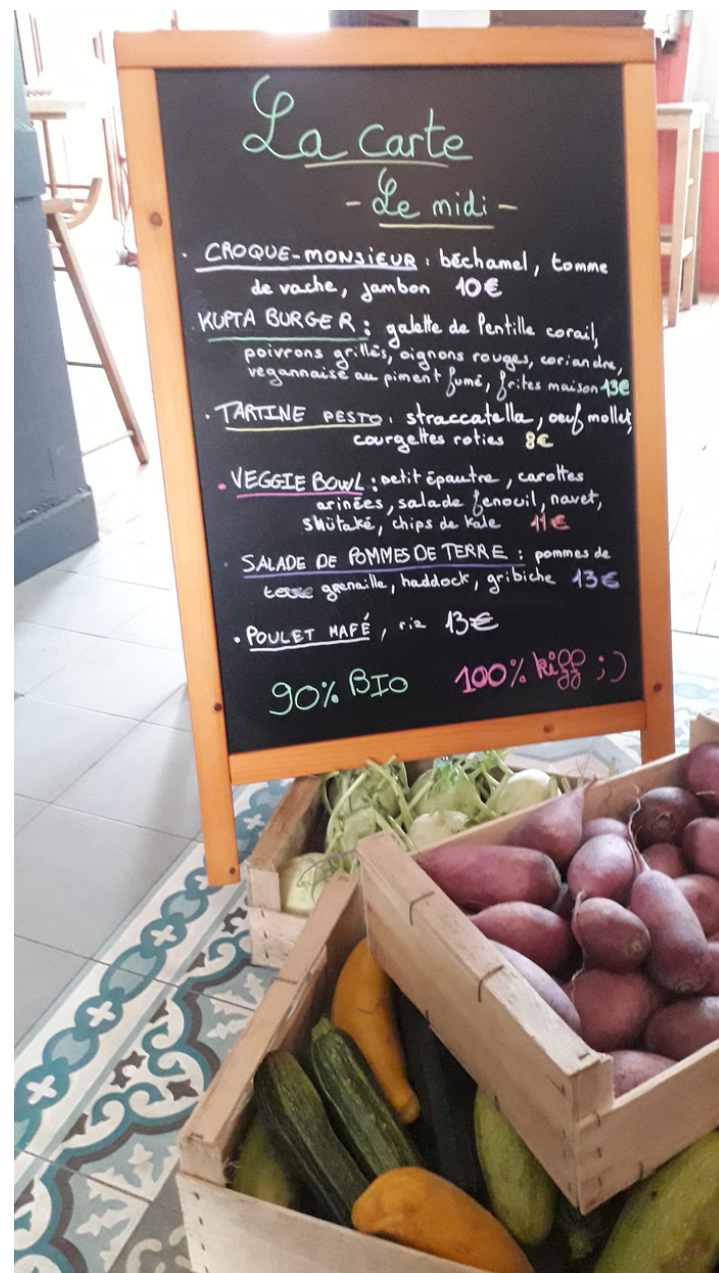 La carte
- Le midi -
. CROQUE-MONSIEUR : béchamel, tomme
de vache, jambon 10€
. KUPTA BURGER : galette de lentille corail,
poivrons grillés, oignons rouges, coriandre,
vegannaise au piment fumé, frites maison 13€
. TARTINE PESTO : straccatella, oeuf mollet,
courgettes roties 8€
. VEGGIE BOWL : petit épautre, carottes
, salade fenouil, navet,
shiitaké, chips de kale 11€
. SALADE DE POMMES DE TERRE : pommes de
grenaille, haddock, gribiche 13€
. POULET MAFÉ, riz 13€
90% BIO 100% kiff ;)